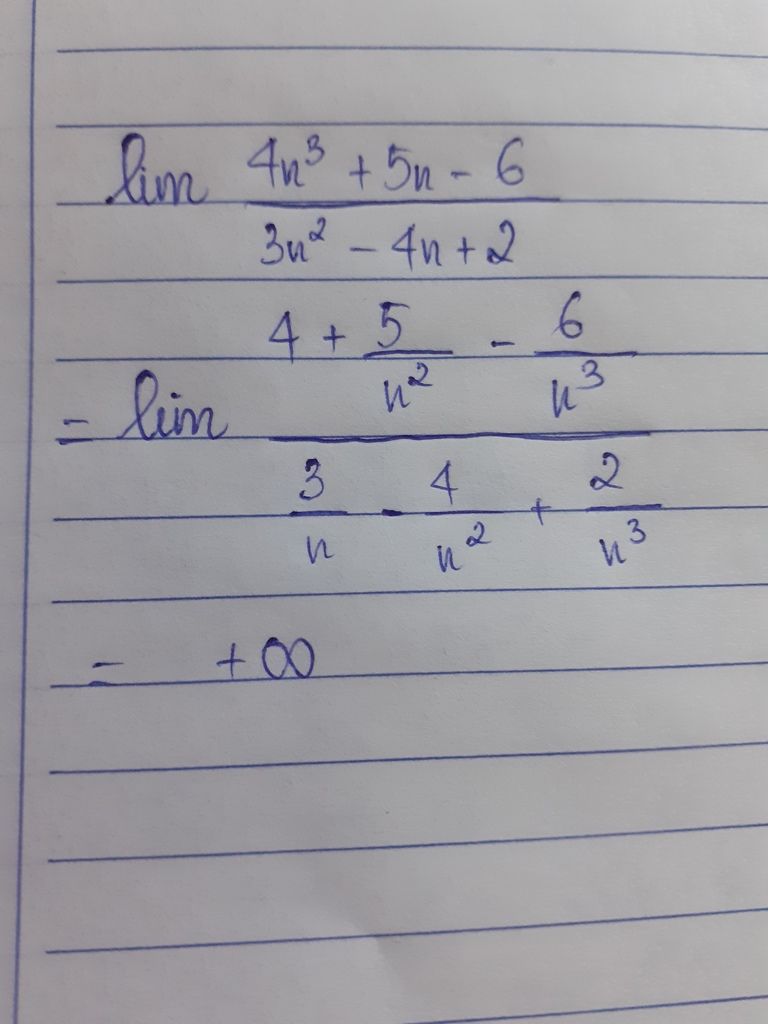 lim (4n³ + 5n - 6) / (3n² - 4n + 2)
= lim (4 + 5/n² - 6/n³) / (3/n - 4/n² + 2/n³)
= +∞